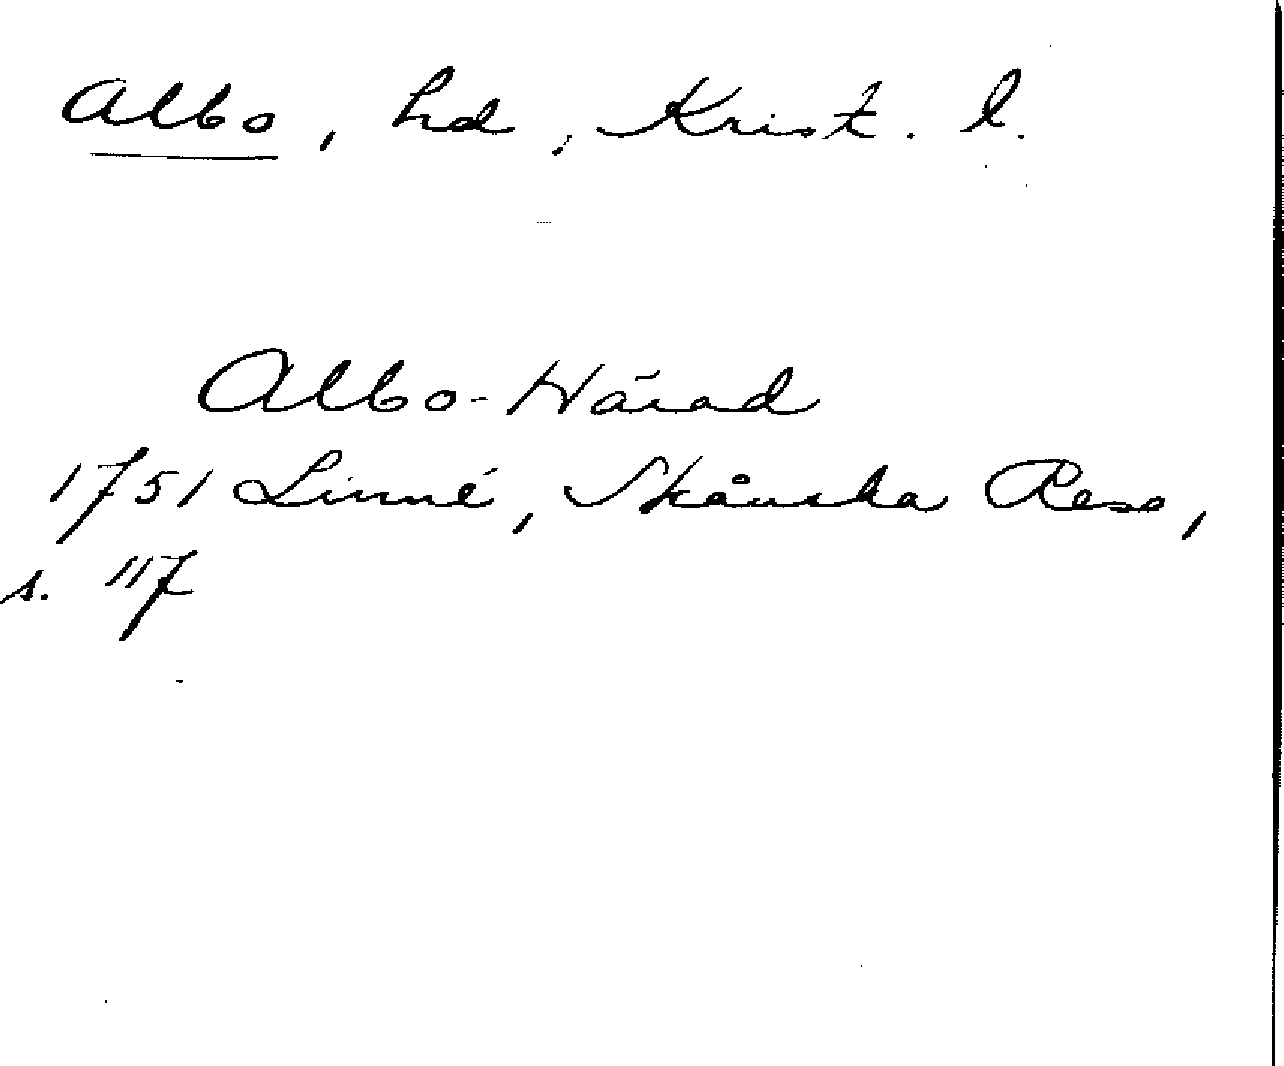 Albo, hd, Krist. l.
Albo-Härad
1751 Linné, Skånska Resa,
s. 117